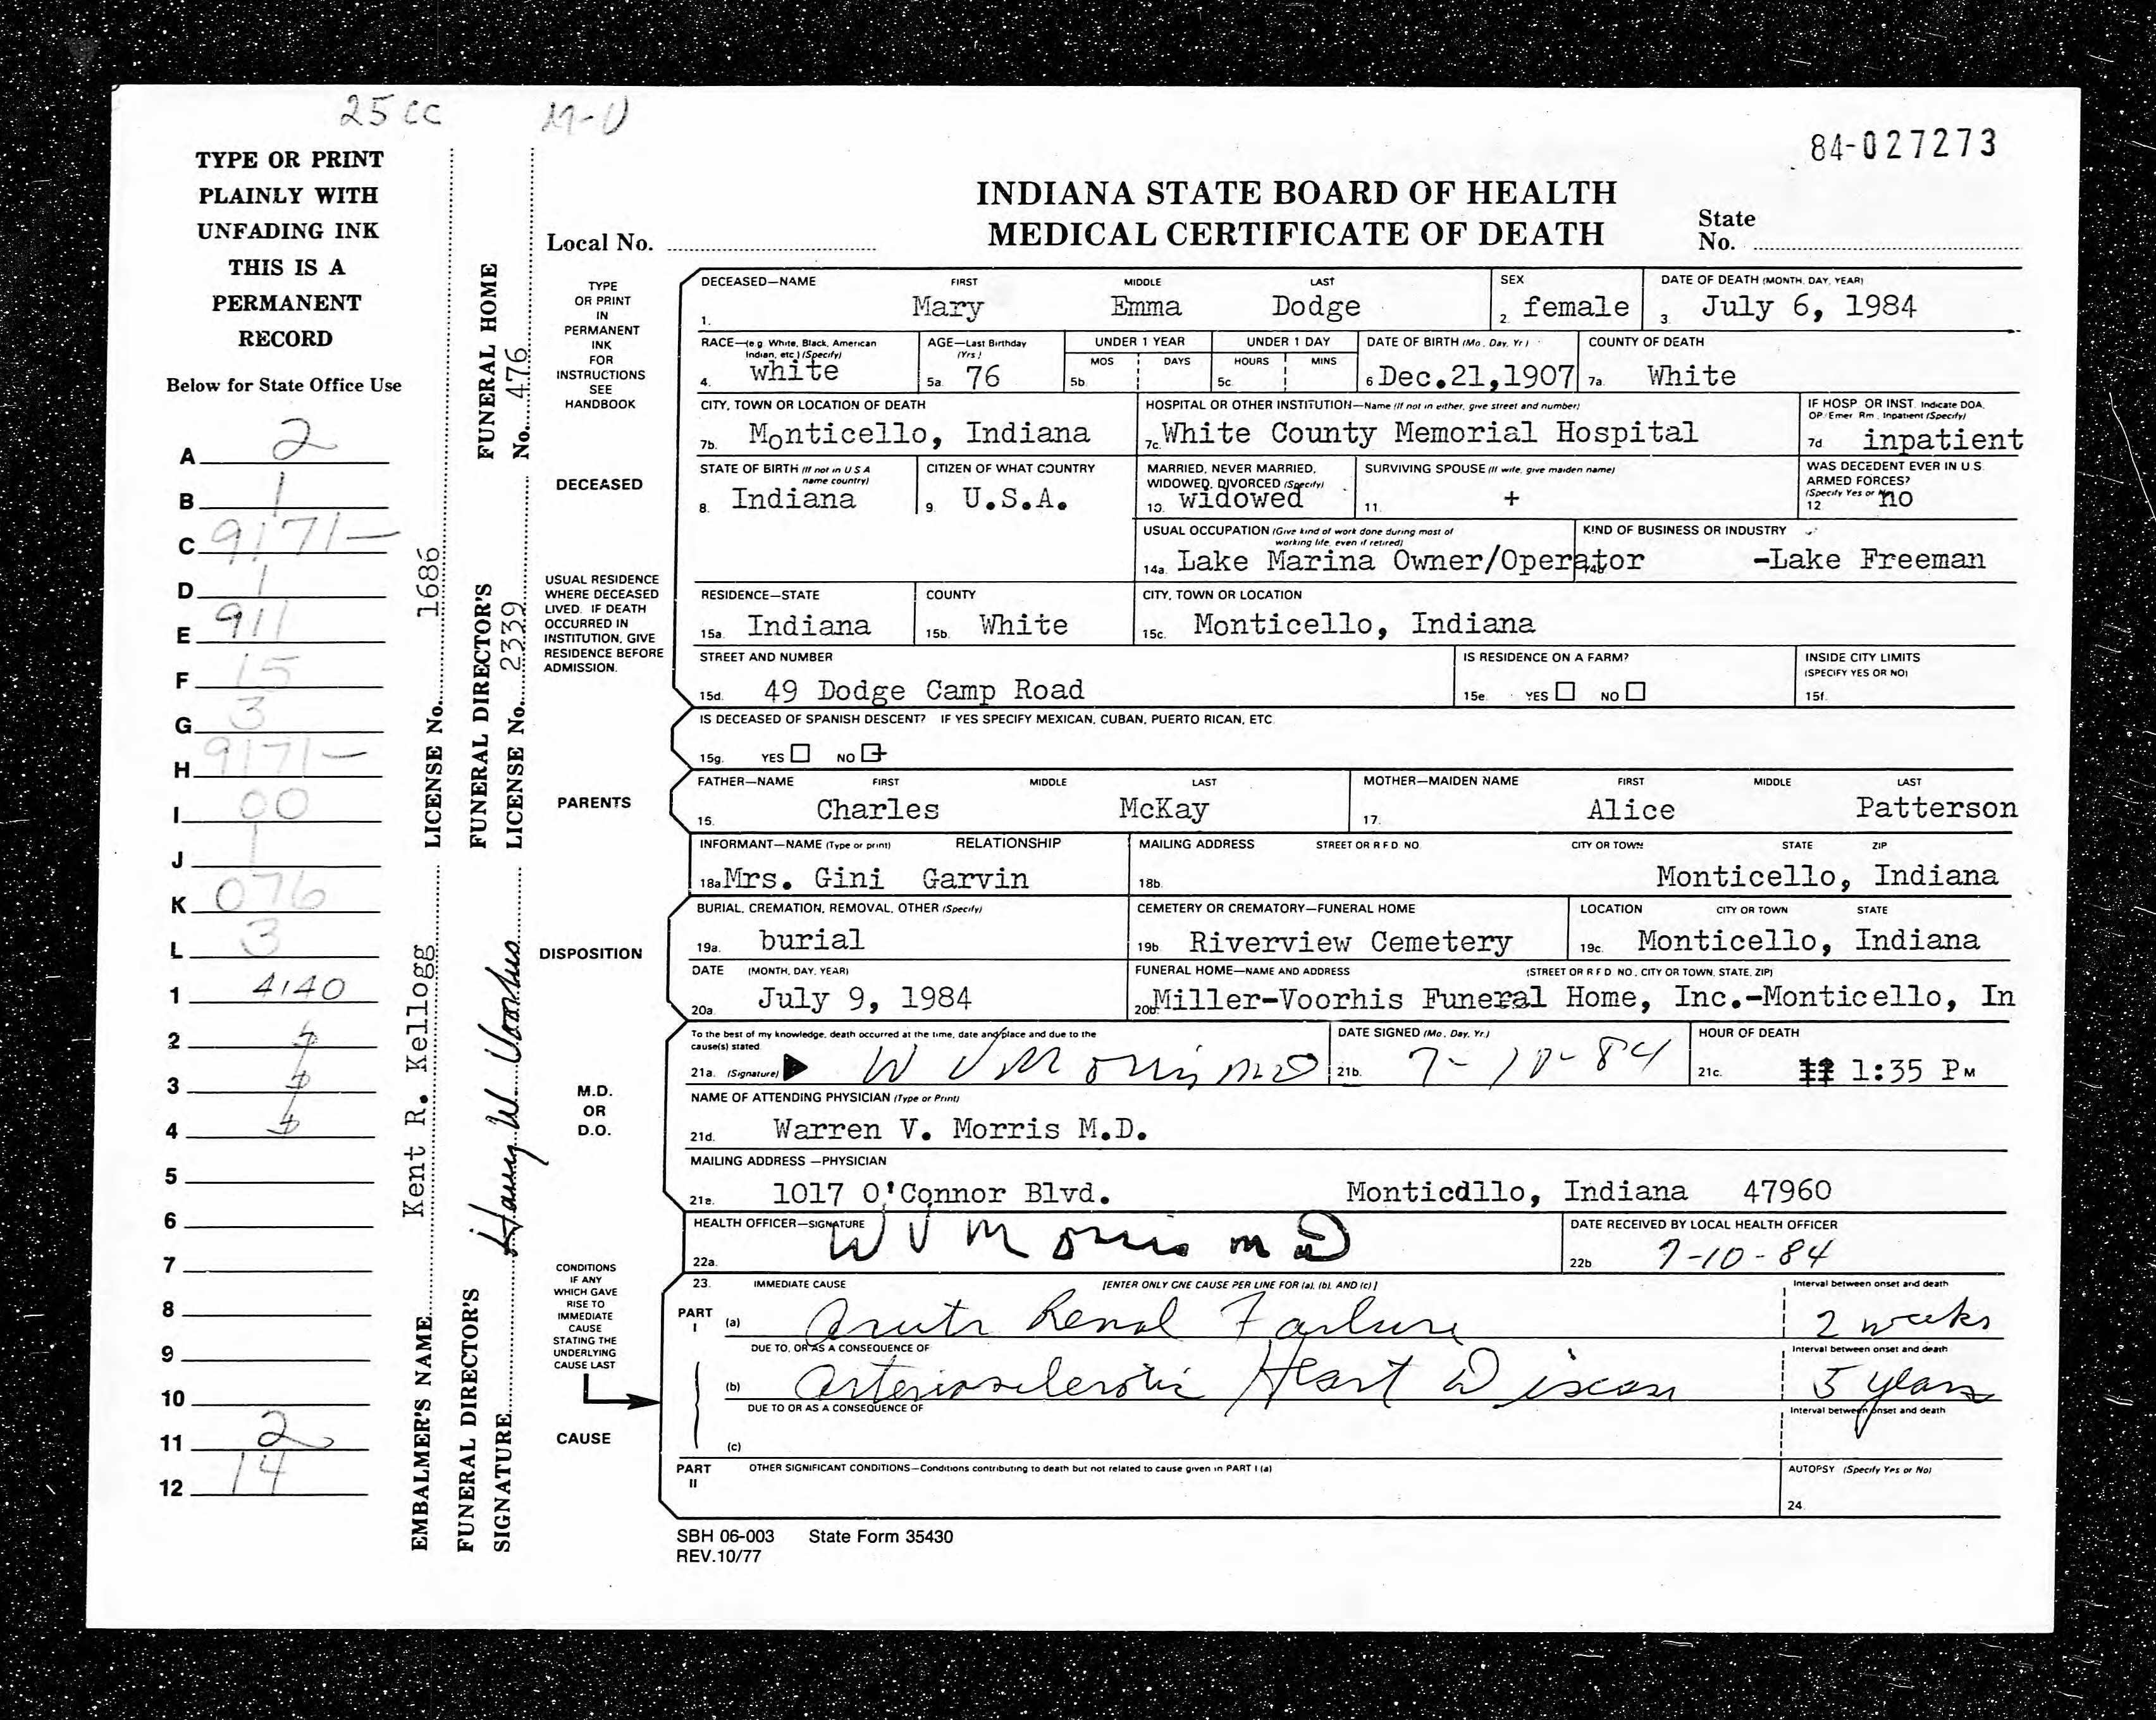 25 CC
84-027273
TYPE OR PRINT
PLAINLY WITH
UNFADING INK
THIS IS A
PERMANENT
RECORD
Below for State Office Use
A 2
B 1
C 9171-
D 1
E 911
F 15
G 3
H 9171-
I 00
J 1
K 076
L 3
1 4140
2
3
4
5
6
7
8
9
10
11 2
12 14
EMBALMER'S NAME Kent R. Kellogg LICENSE No. 1686
FUNERAL DIRECTOR'S
SIGNATURE Harry W. Voorhis
FUNERAL DIRECTOR'S
LICENSE No. 2339
FUNERAL HOME
No. 476
INDIANA STATE BOARD OF HEALTH
MEDICAL CERTIFICATE OF DEATH
Local No.
State
No.
TYPE
OR PRINT
IN
PERMANENT
INK
FOR
INSTRUCTIONS
SEE
HANDBOOK
DECEASED
USUAL RESIDENCE
WHERE DECEASED
LIVED. IF DEATH
OCCURRED IN
INSTITUTION, GIVE
RESIDENCE BEFORE
ADMISSION.
PARENTS
DISPOSITION
M.D.
OR
D.O.
CONDITIONS
IF ANY
WHICH GAVE
RISE TO
IMMEDIATE
CAUSE
STATING THE
UNDERLYING
CAUSE LAST
CAUSE
DECEASED—NAME FIRST MIDDLE LAST SEX DATE OF DEATH (MONTH, DAY, YEAR)
1. Mary Emma Dodge 2. female 3. July 6, 1984
RACE—(e.g. White, Black, American Indian, etc.) (Specify) AGE—Last Birthday (Yrs.) UNDER 1 YEAR UNDER 1 DAY DATE OF BIRTH (Mo., Day, Yr.) COUNTY OF DEATH
MOS DAYS HOURS MINS
4. white 5a. 76 5b. 5c. 6 Dec.21,1907 7a. White
CITY, TOWN OR LOCATION OF DEATH HOSPITAL OR OTHER INSTITUTION—Name (If not in either, give street and number) IF HOSP. OR INST. Indicate DOA, OP/Emer. Rm., Inpatient (Specify)
7b. Monticello, Indiana 7c. White County Memorial Hospital 7d. inpatient
STATE OF BIRTH (If not in U.S.A. name country) CITIZEN OF WHAT COUNTRY MARRIED, NEVER MARRIED, WIDOWED, DIVORCED (Specify) SURVIVING SPOUSE (If wife, give maiden name) WAS DECEDENT EVER IN U.S. ARMED FORCES? (Specify Yes or No)
8. Indiana 9. U.S.A. 10. widowed 11. + 12 no
USUAL OCCUPATION (Give kind of work done during most of working life, even if retired) KIND OF BUSINESS OR INDUSTRY
14a. Lake Marina Owner/Operator 14b. -Lake Freeman
RESIDENCE—STATE COUNTY CITY, TOWN OR LOCATION
15a. Indiana 15b. White 15c. Monticello, Indiana
STREET AND NUMBER IS RESIDENCE ON A FARM? INSIDE CITY LIMITS (SPECIFY YES OR NO)
15d. 49 Dodge Camp Road 15e. YES NO 15f.
IS DECEASED OF SPANISH DESCENT? IF YES SPECIFY MEXICAN, CUBAN, PUERTO RICAN, ETC.
15g. YES NO +
FATHER—NAME FIRST MIDDLE LAST MOTHER—MAIDEN NAME FIRST MIDDLE LAST
16. Charles McKay 17. Alice Patterson
INFORMANT—NAME (Type or print) RELATIONSHIP MAILING ADDRESS STREET OR R.F.D. NO. CITY OR TOWN STATE ZIP
18a Mrs. Gini Garvin 18b. Monticello, Indiana
BURIAL, CREMATION, REMOVAL, OTHER (Specify) CEMETERY OR CREMATORY—FUNERAL HOME LOCATION CITY OR TOWN STATE
19a. burial 19b. Riverview Cemetery 19c. Monticello, Indiana
DATE (MONTH, DAY, YEAR) FUNERAL HOME—NAME AND ADDRESS (STREET OR R.F.D. NO., CITY OR TOWN, STATE, ZIP)
20a. July 9, 1984 20b. Miller-Voorhis Funeral Home, Inc.-Monticello, In
To the best of my knowledge, death occurred at the time, date and place and due to the cause(s) stated. DATE SIGNED (Mo., Day, Yr.) HOUR OF DEATH
21a. (Signature) W V Morris MD 21b. 7-10-84 21c. 1:35 P M
NAME OF ATTENDING PHYSICIAN (Type or Print)
21d. Warren V. Morris M.D.
MAILING ADDRESS —PHYSICIAN
21e. 1017 O'Connor Blvd. Monticdllo, Indiana 47960
HEALTH OFFICER—SIGNATURE DATE RECEIVED BY LOCAL HEALTH OFFICER
22a. W V Morris MD 22b 7-10-84
23. IMMEDIATE CAUSE [ENTER ONLY ONE CAUSE PER LINE FOR (a), (b), AND (c)] Interval between onset and death
PART I (a) Acute Renal Failure 2 weeks
DUE TO, OR AS A CONSEQUENCE OF Interval between onset and death
(b) Arteriosclerotic Heart Disease 5 years
DUE TO OR AS A CONSEQUENCE OF Interval between onset and death
(c)
PART II OTHER SIGNIFICANT CONDITIONS—Conditions contributing to death but not related to cause given in PART I (a) AUTOPSY (Specify Yes or No)
24.
SBH 06-003 State Form 35430
REV.10/77